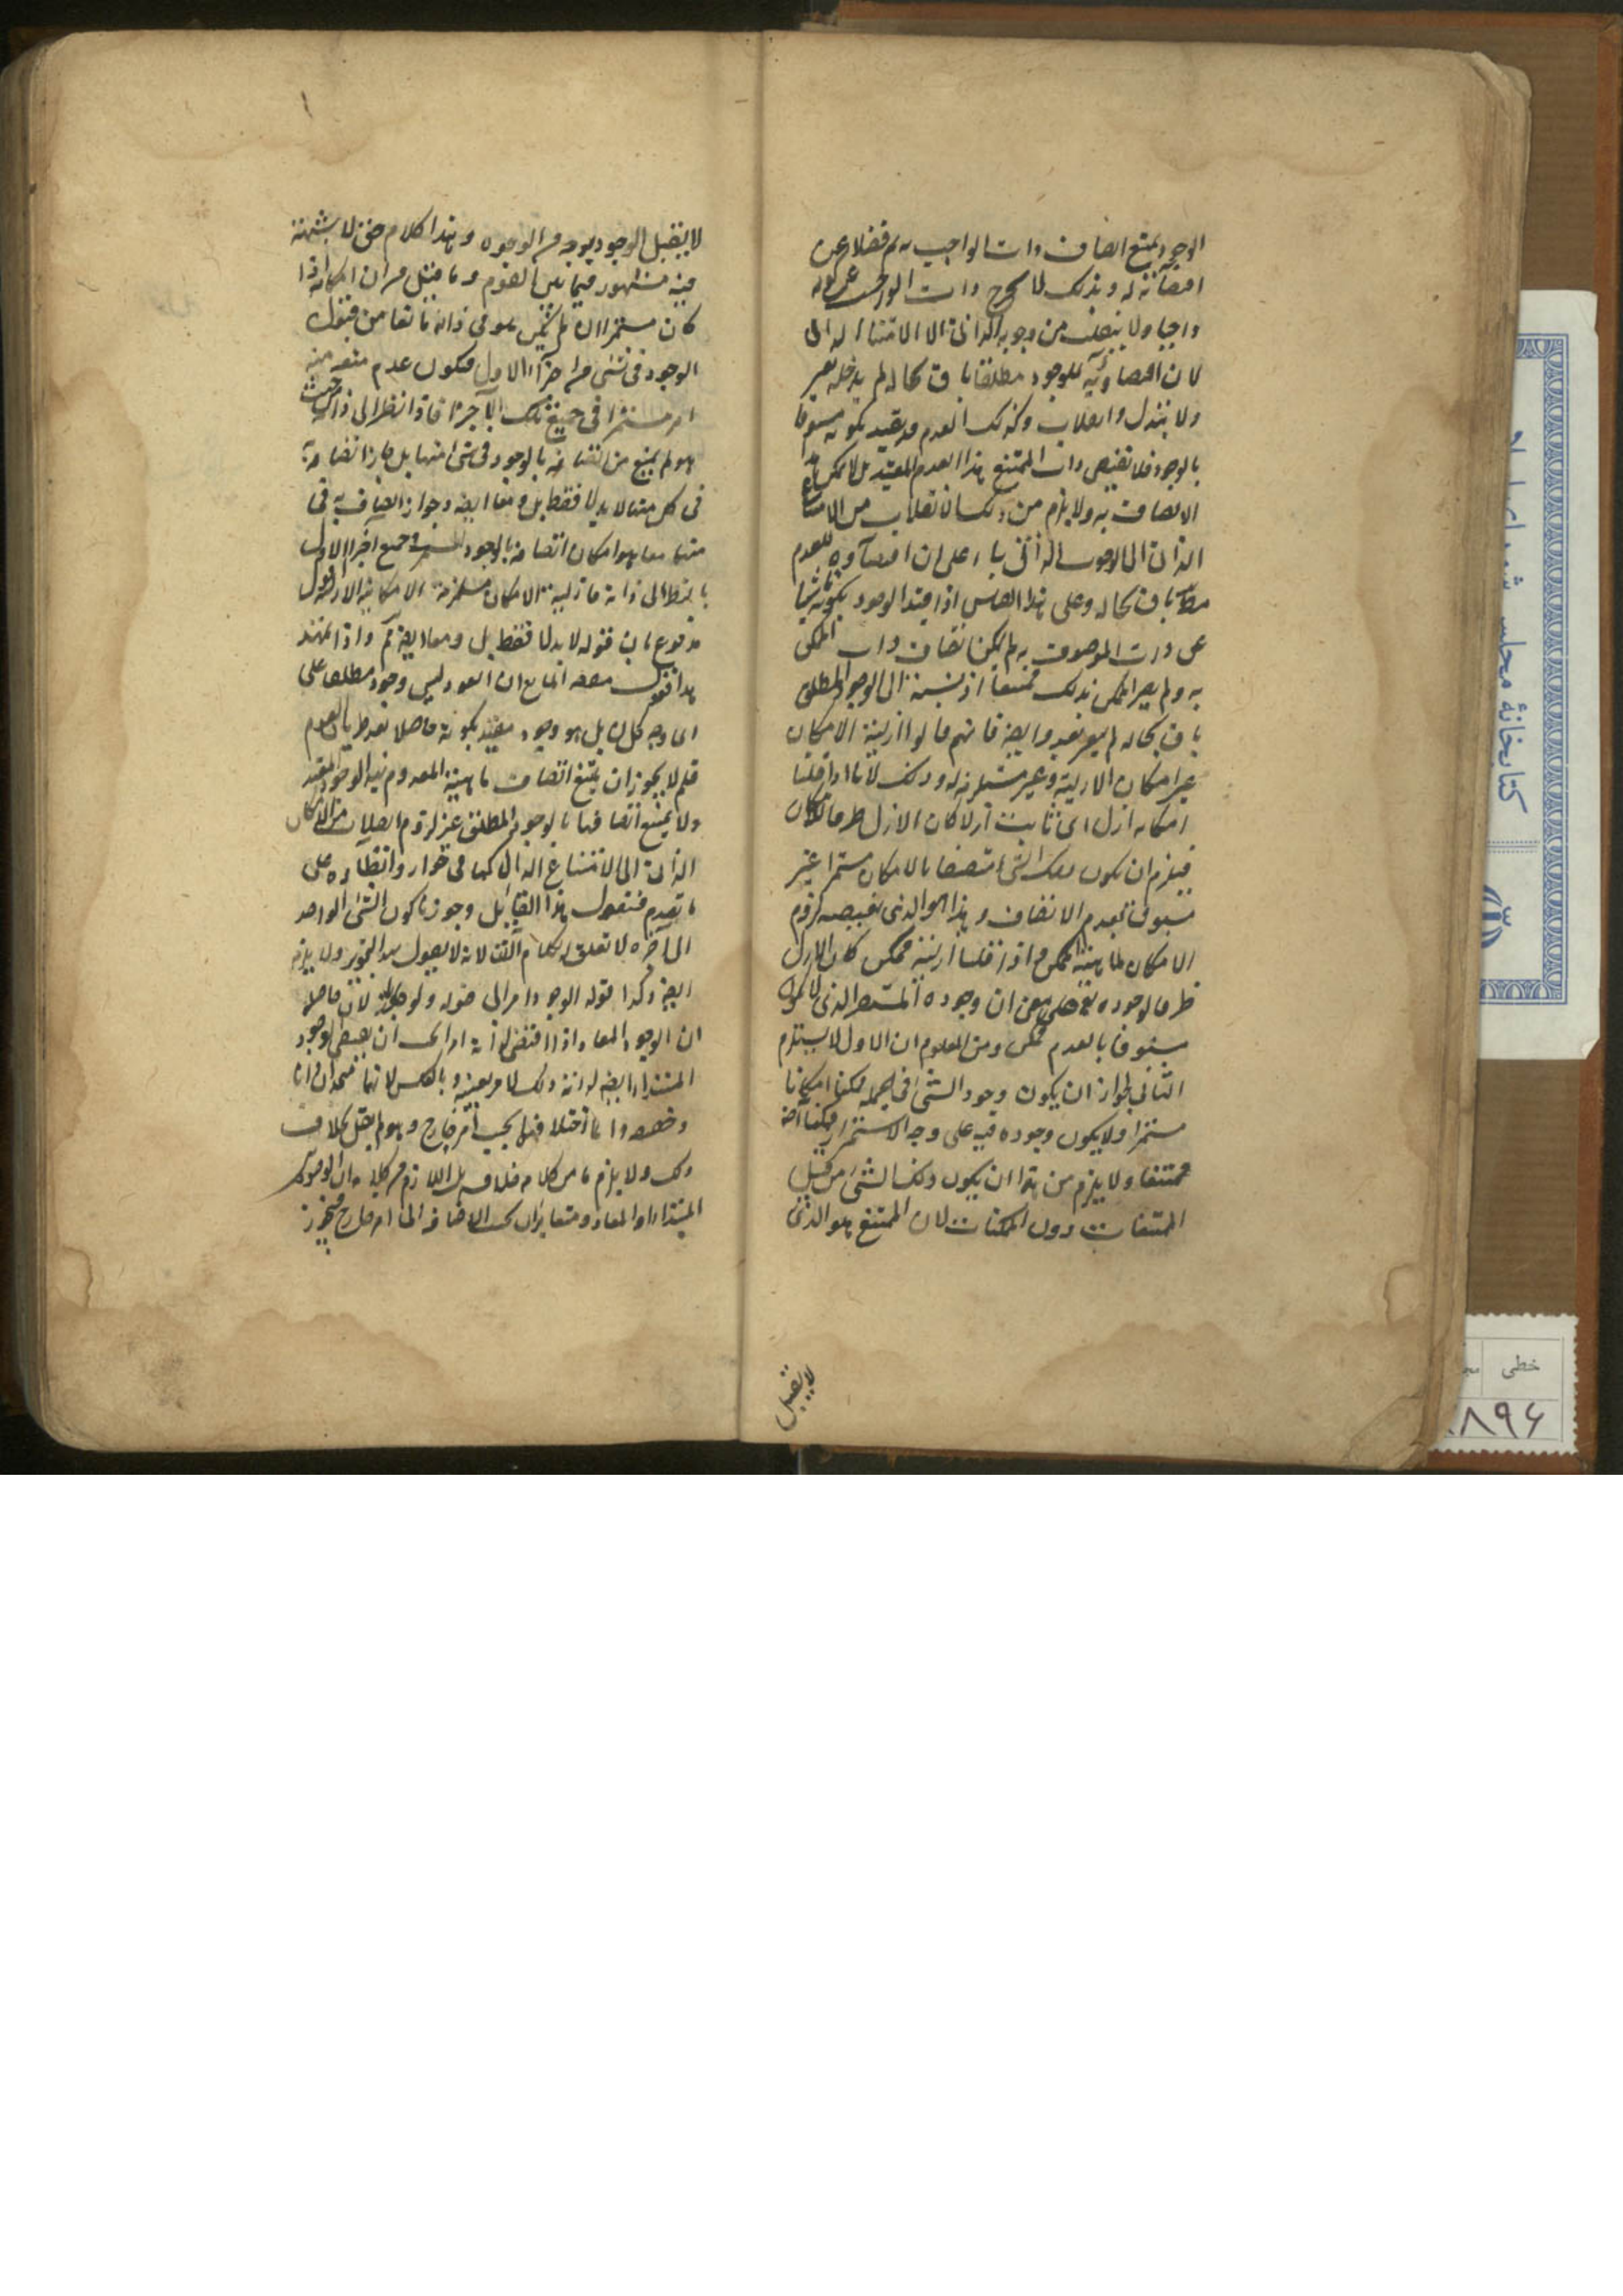 الوجود يمتنع اتصاف ذات الواجب به فضلا عن
اقتضائه له وبذلك لا يخرج ذات الواجب عن كونه
واجبا ولا ينقلب من وجوبه الذاتى الى الامتناع الذاتى
لان اقتضاءه للوجود مطلقا باق بحاله لم يدخله تغير
ولا تبدل وانقلاب وكذلك العدم قد يقيد بكونه مسبوقا
بالوجود فلا تقتضى ذات الممتنع هذا العدم المقيد بل لا يمكن
الاتصاف به ولا يلزم من ذلك انقلاب من الامتناع
الذاتى الى الوجوب الذاتى بناء على ان اقتضاءه للعدم
باق بحاله وعلى هذا القياس اذا قيد الوجود بكونه ناشيا
عن ذات الموصوف به لم يكن اتصاف ذات الممكن
به ولم يصر الممكن بذلك ممتنعا اذ نسبته الى الوجود المطلق
باق بحاله لم يتغير وايضا فانهم قالوا ازلية الامكان
غير امكان الازلية وغير مستلزم له وذلك لانا اذا قلنا
امكانه ازلى اى ثابت ازلا كان الازل ظرفا للامكان
فيلزم ان يكون ذلك الشىء متصفا بالامكان مستمرا غير
مسبوق بعدم الاتصاف وهذا هو الذى يقتضيه لزوم
الامكان لماهية الممكن واذا قلنا ازليته ممكن كان الازل
ظرفا لوجوده على معنى ان وجوده المستمر الذى لا يكون
مسبوقا بالعدم ممكن ومن المعلوم ان الاول لا يستلزم
الثانى لجواز ان يكون وجود الشىء فى الجملة ممكنا امكانا
مستمرا ولا يكون وجوده فيه على وجه الاستمرار ممكنا
ممتنعا ولا يلزم من هذا ان يكون ذلك الشىء من قبيل
الممتنعات دون الممكنات لان الممتنع هو الذى
لا يقبل
لا يقبل الوجود بوجه من الوجوه وهذا كلام حق لا شبهة
فيه مشهور فيما بين القوم وما قيل من ان امكانه اذا
كان مستمرا ازلا لم يكن هو فى ذاته مانعا من قبول
الوجود فى شىء من اجزاء الازل فيكون عدم منعه منه
امر مستمرا فى جميع تلك الاجزاء فاذا نظر الى ذاته من حيث
هو لم يمنع من اتصافه بالوجود فى شىء منها بل جاز اتصافه به
فى كل منها لا بدلا فقط بل ومعا ايضا وجواز اتصافه به فى
منها معا هو امكان اتصافه بالوجود المستمر فى جميع اجزاء الازل
بالنظر الى ذاته فازلية الامكان مستلزمة لامكانية الازلية
مدفوع بان قوله لا بدلا فقط بل ومعا ايضا مم واذا تمهد
هذا فنقول معنى المانع ان العود ليس وجودا مطلقا على
اى وجه كان بل هو وجود مقيد بكونه حاصلا بعد طريان العدم
فلم لا يجوز ان يمتنع اتصاف ماهية المعدوم بهذا الوجود المقيد
ولا يمتنع اتصافها بالوجود المطلق من غير لزوم انقلاب من الامكان
الذاتى الى الامتناع الذاتى كما فى نظائره على
ما تقدم فنقول هذا القائل وجوزنا كون الشىء الواحد
الى آخره لا تعلق له بكلام القائل لانه لا يقول بهذا التجويز ولا يلزم
ايضا وكذا قوله الوجود امر الى قوله لان حاصله
ان الوجود المعاد اذا اقتضى لذاته امرا يجب ان يقتضى الوجود
المبتدأ ايضا لذاته ذلك الامر بعينه وبالعكس لانهما متحدان ذاتا
وانما اختلافهما بحسب امر خارج وهو لم يقل بخلاف
ذلك ولا يلزم من كلامه خلافه بل اللازم من كلامه ان الوجود
المبتدأ والمعاد متغايران بحسب الاضافة الى امر خارج
كتابخانهٔ مجلس شورای
خطی
٨٩۶